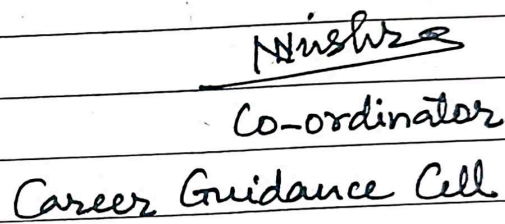 NMishra
Co-ordinator
Career Guidance Cell